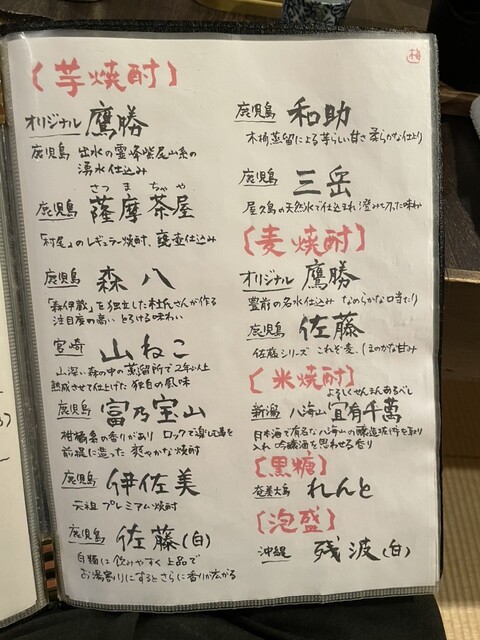 〔芋焼酎〕
オリジナル 鷹勝
鹿児島 出水の霊峰紫尾山系の
湧水仕込み
さつま ちゃや
鹿児島 薩摩茶屋
「村尾」のレギュラー焼酎、甕壺仕込み
鹿児島 森八
「森伊蔵」を独立した杜氏さんが作る
注目度の高い とろける味わい
宮崎 山ねこ
山深い森の中の蒸留所で2年以上
熟成させて仕上げた独自の風味
鹿児島 富乃宝山
柑橘系の香りがあり ロックで楽しむ事を
前提に造った 爽やかな焼酎
鹿児島 伊佐美
元祖 プレミアム焼酎
鹿児島 佐藤(白)
白麹は飲みやすく上品で
お湯割りにするとさらに香りが広がる
鹿児島 和助
木桶蒸留による芋らしい甘さ 柔らかな仕上り
鹿児島 三岳
屋久島の天然水で仕込まれ 澄みきった味わい
〔麦焼酎〕
オリジナル 鷹勝
豊前の名水仕込み なめらかな口当たり
鹿児島 佐藤
佐藤シリーズ これぞ麦、ほのかな甘み
〔米焼酎〕
よろしくせんまんあるべし
新潟 八海山 宜有千萬
日本酒で有名な八海山の醸造技術を取り
入れ 吟醸酒を思わせる香り
〔黒糖〕
奄美大島 れんと
〔泡盛〕
沖縄 残波(白)